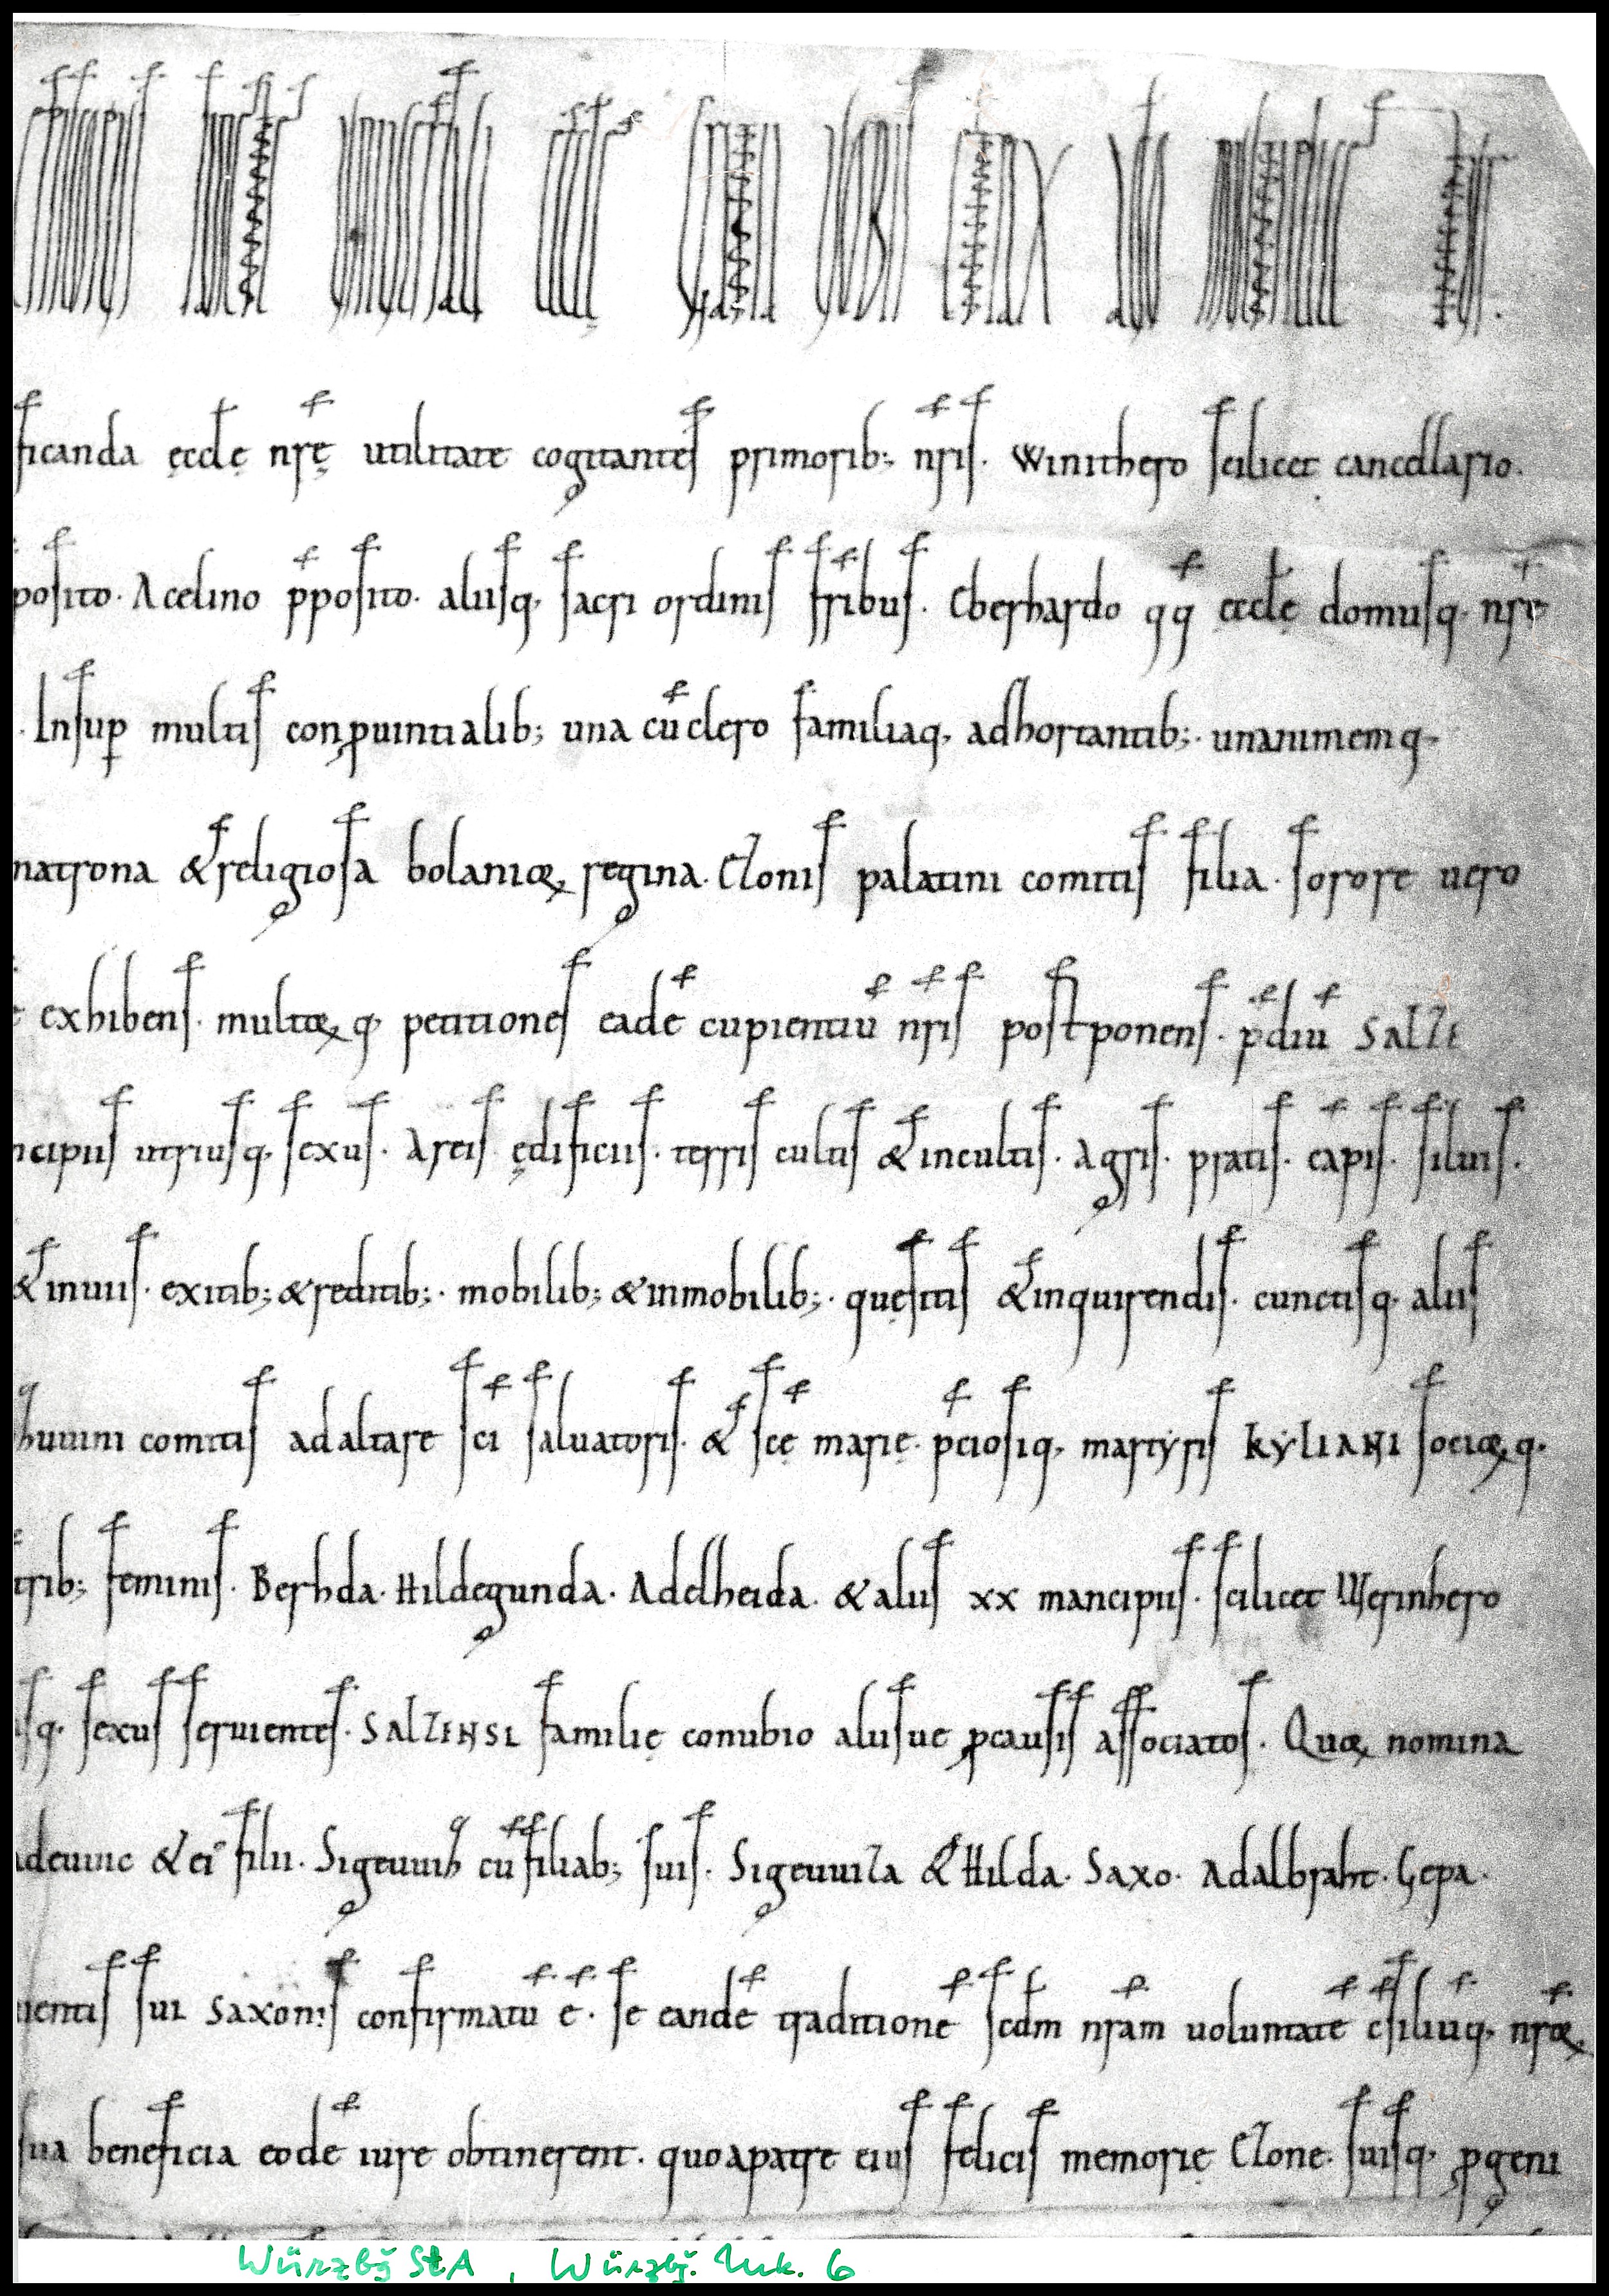 ficanda ęccłę nr̄ę utilitate cogitantes primorib; nr̄is. Winithero scilicet cancellario.
posito. Acelino p̄posito. aliisq. sacri ordinis fr̄ibus. Eberhardo qq̄ ęccłę domusq. nr̄ę
. Insup̱ multis conꝓuintialib; una cū clero familiaq. adhortantib;. unanimemq.
matrona & religiosa bolanioꝝ regina. Ezonis palatini comitis filia. sorore uero
exhibens. multoꝝq. petitiones eadē cupientiū nr̄is postponens. p̄diū SALZE
ncipiis utriusq. sexus. Areis ędificiis. terris cultis & incultis. Agris. pratis. cāpis. siluis.
& inuiis. exitib; & reditib;. mobilib; & inmobilib;. quęsitis & inquirendis. cunctisq. aliis
buuini comitis ad altare sc̄i saluatoris. & sc̄ę marię. p̄ciosiq. martẏris KẎLIANI socioꝝq.
trib; feminis. Berhda. Hildegunda. Adelheida. & aliis xx mancipiis. scilicet Werinhero
sq. sexus seruientes. SALZENSI familię conubio aliisue ꝑ causis associatos. Quoꝝ nomina
adeuuic & ei⁹ filii. Sigeuuib cū filiab; suis. Sigeuuiza & Hilda. Saxo. Adalbraht. Gepa.
uientis sui Saxonis confirmatū ē. Se eandē traditionē scdm nr̄am uoluntatē c̄siliūq. nr̄oꝝ
sua beneficia eodē iure obtinerent. quo a patre eius felicis memorię Ezone. suisq. ꝓgeni
Würzbg StA, Würzbg. Urk. 6